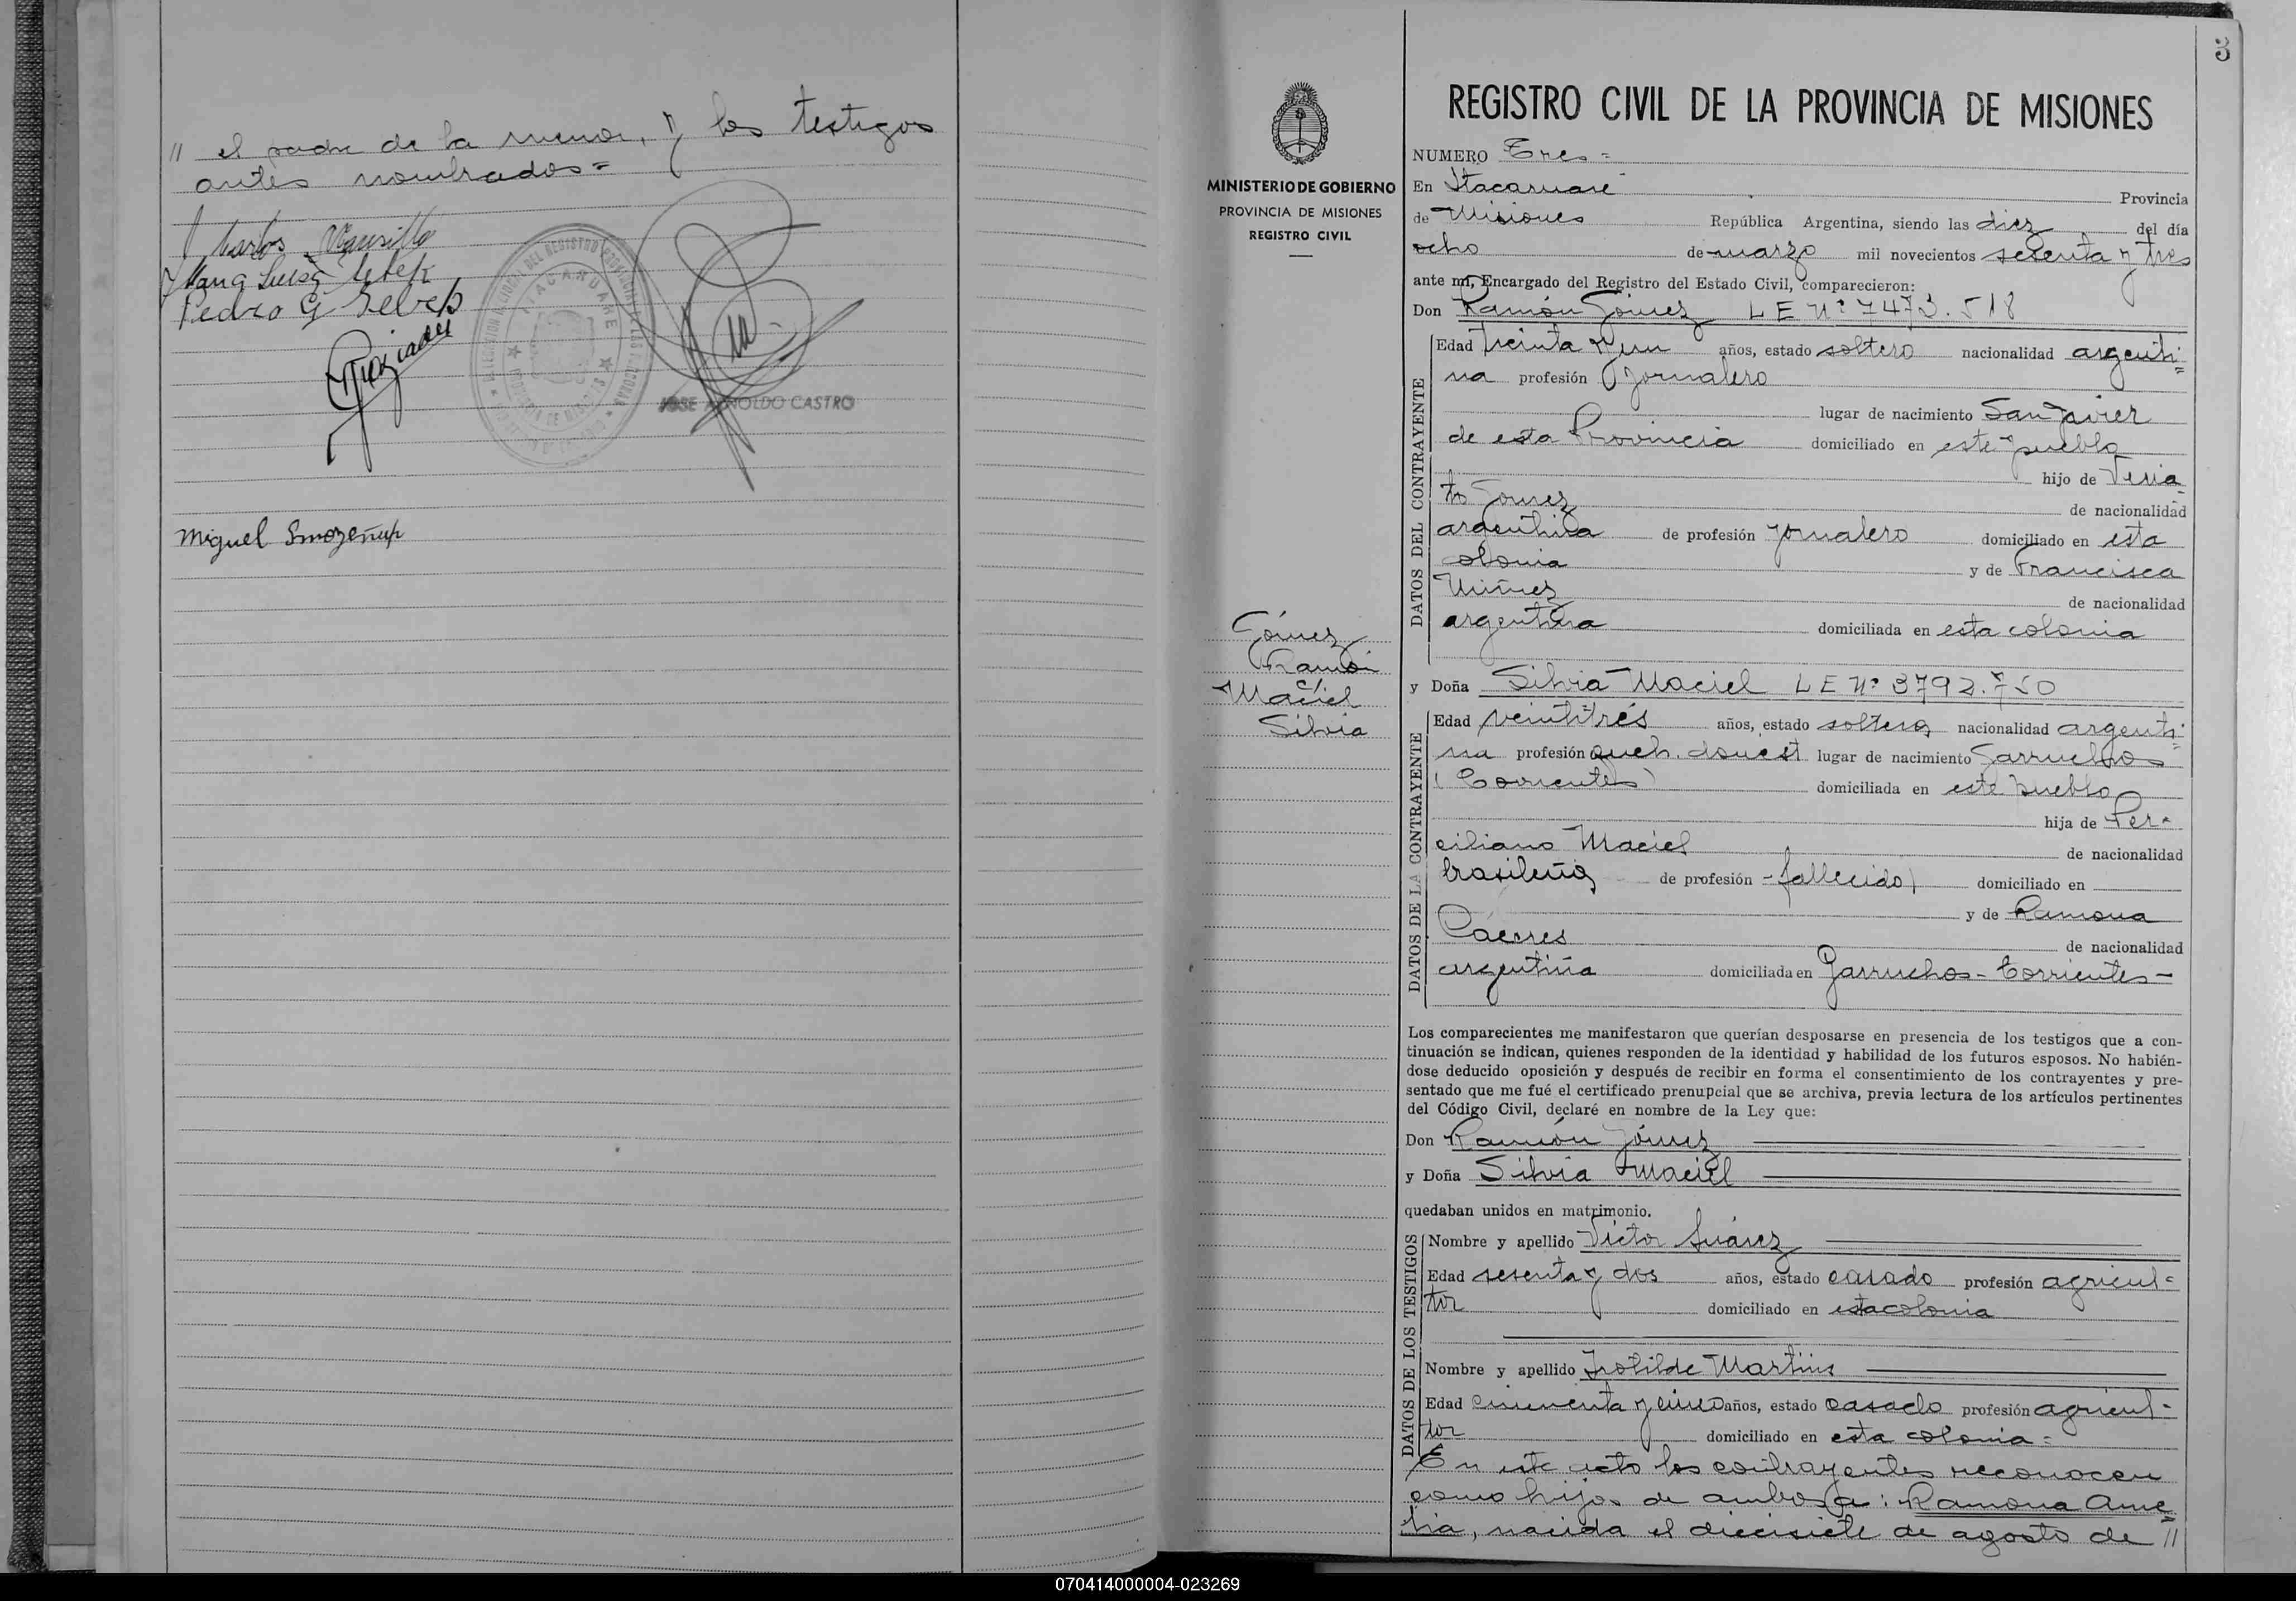 // el padre de la menor, y los testigos
antes nombrados=
Carlos
Maria Luisa
Pedro G
JOSE ARNOLDO CASTRO
Miguel
3
MINISTERIO DE GOBIERNO
PROVINCIA DE MISIONES
REGISTRO CIVIL
Gómez
Ramón
c/
Maciel
Silvia
REGISTRO CIVIL DE LA PROVINCIA DE MISIONES
NUMERO Tres=
En Itacaruaré Provincia
de Misiones República Argentina, siendo las diez del día
ocho de marzo mil novecientos sesenta y tres
ante mí, Encargado del Registro del Estado Civil, comparecieron:
Don Ramón Gómez LE Nº 7473.518
DATOS DEL CONTRAYENTE
Edad treinta y un años, estado soltero nacionalidad argenti=
na profesión Jornalero
lugar de nacimiento San Javier
de esta Provincia domiciliado en este pueblo
hijo de Veria=
to Gomez de nacionalidad
argentina de profesión Jornalero domiciliado en esta
colonia y de Francisca
de nacionalidad
argentina domiciliada en esta colonia
y Doña Silvia Maciel LE Nº 3792.750
DATOS DE LA CONTRAYENTE
Edad veintitrés años, estado soltera nacionalidad argenti=
na profesión queh. domest lugar de nacimiento Garruchos
(Corrientes) domiciliada en este pueblo
hija de Per=
ciliano Maciel de nacionalidad
brasileña de profesión -fallecido) domiciliado en
y de Ramona
Caceres de nacionalidad
argentina domiciliada en Garruchos - Corrientes -
Los comparecientes me manifestaron que querían desposarse en presencia de los testigos que a con-
tinuación se indican, quienes responden de la identidad y habilidad de los futuros esposos. No habién-
dose deducido oposición y después de recibir en forma el consentimiento de los contrayentes y pre-
sentado que me fué el certificado prenupcial que se archiva, previa lectura de los artículos pertinentes
del Código Civil, declaré en nombre de la Ley que:
Don Ramón Gómez
y Doña Silvia Maciel
quedaban unidos en matrimonio.
DATOS DE LOS TESTIGOS
Nombre y apellido Victor Suárez
Edad sesenta y dos años, estado casado profesión agricul=
tor domiciliado en esta colonia
Nombre y apellido Isolilde Martins
Edad cincuenta y cinco años, estado casado profesión agricul=
tor domiciliado en esta colonia=
En este acto los contrayentes reconocen
como hijos de ambos a: Ramona Ame=
lia, nacida el diecisiete de agosto de //
070414000004-023269